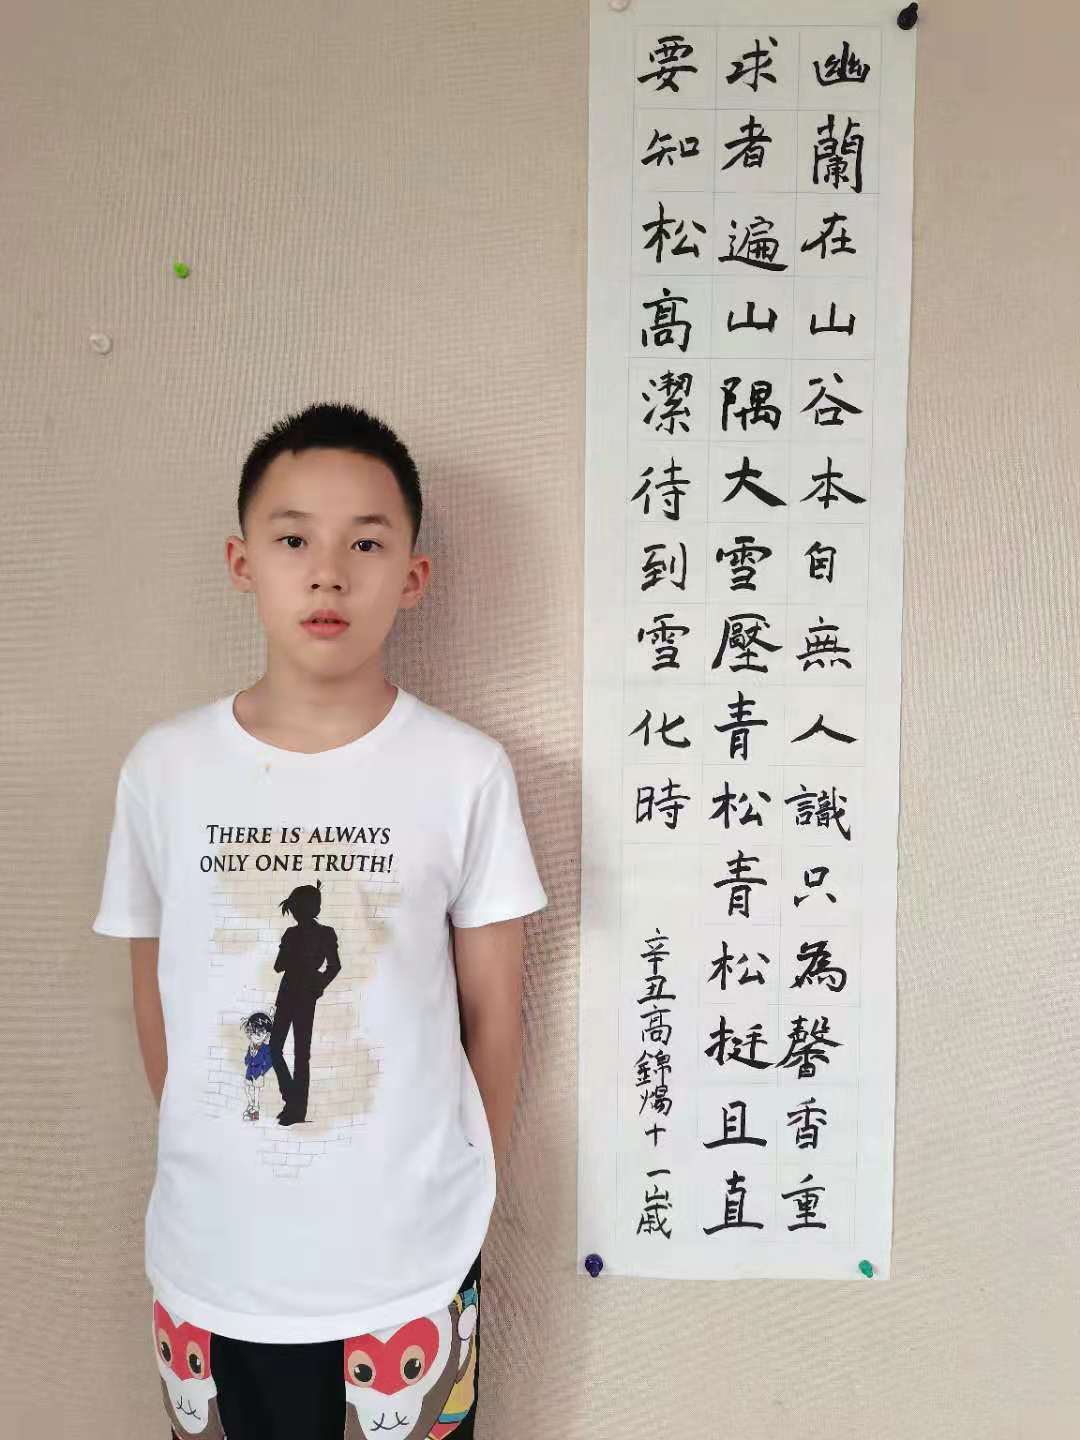 幽蘭在山谷本自無人識只為馨香重
求者遍山隅大雪壓青松青松挺且直
要知松高潔待到雪化時
辛丑高錦煬十一歲
THERE IS ALWAYS
ONLY ONE TRUTH!